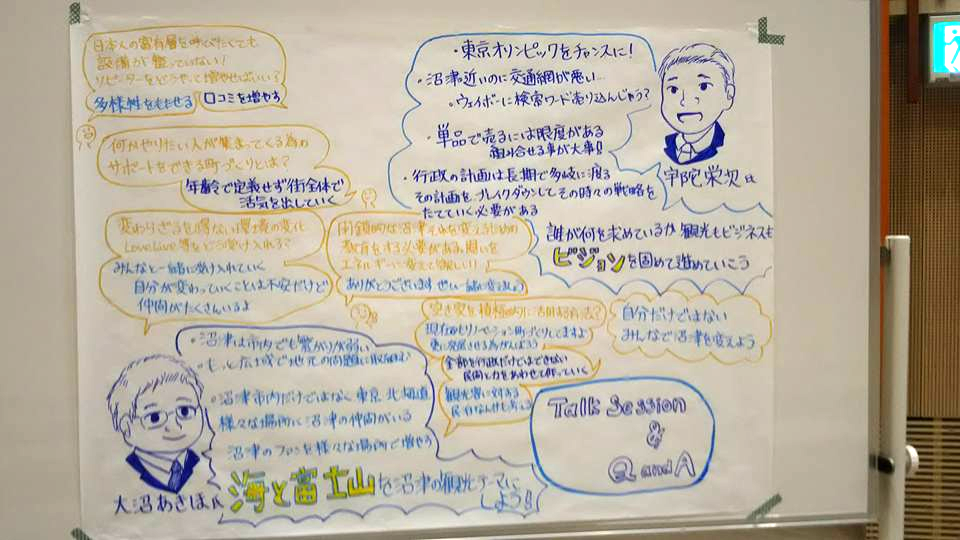 日本人の富有層を呼びたくても
設備が整っていない!
リピーターをどうやって増やせばいい?
多様性をもたせる
口コミを増やす
何かやりたい人が集まってくる為の
サポートをできる町づくりとは?
年齢で定義せず街全体で
活気を出していく
変わりざるを得ない環境の変化
LoveLive等をどう受け入れる?
みんなと一緒に受け入れていく
自分が変わっていくことは不安だけど
仲間がたくさんいるよ
閉鎖的な沼津
教育をする必要がある
エネルギーに変えて欲しい!
ありがとうございます ぜひ一緒に変えましょう
・東京オリンピックをチャンスに!
・沼津近いのに交通網が悪い…
・ウェイボーに検索ワード売り込んじゃう?
・単品で売るには限度がある
組み合せる事が大事!!
・行政の計画は長期で多岐に渡る
その計画をブレイクダウンしてその時々の戦略を
たてていく必要がある
宇陀栄次氏
誰が何を求めているか 観光もビジネスも
ビジョンを固めて進めていこう
空き家を積極的に活用する方法?
現在もリノベーション町づくりしてますよ
更に発展させる為がんばろう
全部を行政だけではできない
民間と力をあわせて作っていく
観光客に対する
民泊なんかも考える
自分だけではない
みんなで沼津を変えよう
・沼津は市内でも繋がりが弱い
もっと広域で地元の問題に取組む
・沼津市内だけではなく東京 北海道
様々な場所に沼津の仲間がいる
沼津のファンを様々な場所で増やす
海と富士山を沼津の観光テーマに
しよう!!
大沼あきほ氏
Talk Session
&
Q and A